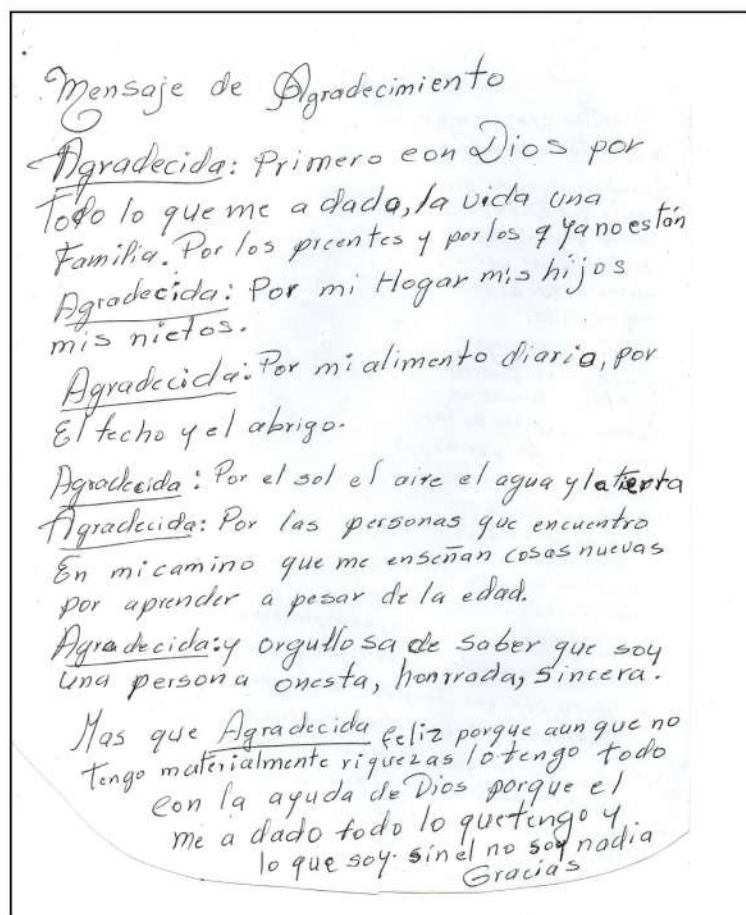 Mensaje de Agradecimiento
Agradecida: Primero con Dios por
todo lo que me a dada, la vida una
Familia. Por los precentes y por los q ya no están
Agradecida: Por mi Hogar mis hijos
mis nietos.
Agradecida: Por mi alimento diario, por
El techo y el abrigo.
Agradecida: Por el sol el aire el agua y la tierra
Agradecida: Por las personas que encuentro
En mi camino que me enseñan cosas nuevas
por aprender a pesar de la edad.
Agradecida: y orgullosa de saber que soy
una persona onesta, honrrada, sincera.
Mas que Agradecida feliz porque aun que no
tengo materialmente riquezas lo tengo todo
con la ayuda de Dios porque el
me a dado todo lo que tengo y
lo que soy. sin el no soy nadia
Gracias